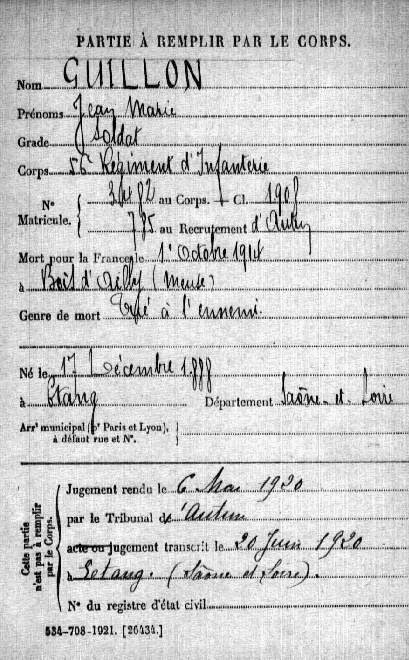 PARTIE À REMPLIR PAR LE CORPS.
Nom GUILLON
Prénoms Jean Marie
Grade Soldat
Corps 56e Régiment d'Infanterie
N° Matricule. { 3482 au Corps. Cl. 1908
785 au Recrutement d'Autun
Mort pour la France le 1er Octobre 1914
à Bois d'Ailly (Meuse)
Genre de mort Tué à l'ennemi
Né le 17 Décembre 1888
à Etang Département Saône-et-Loire
Arrt municipal (pr Paris et Lyon),
à défaut rue et N°.
Cette partie n'est pas à remplir par le Corps.
Jugement rendu le 6 Mai 1920
par le Tribunal de Autun
acte ou jugement transcrit le 20 Juin 1920
à Etang. (Saône et Loire).
N° du registre d'état civil
534-708-1921. [26434.]